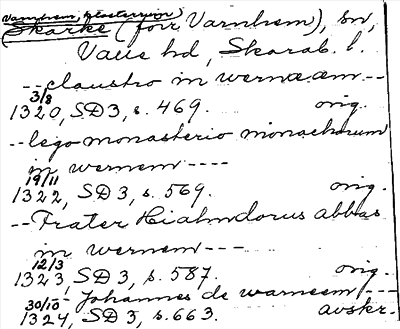 Varnhem, klosterruin
Skarke (förr Varnhem), sn,
Valle hd, Skarab. l.
-- claustro in wernæem --
3/8
1320, SD 3, s. 469. orig.
-- lego monasterio monachorum
in wernem ----
19/11
1322, SD 3, s. 569. orig.
-- Frater Hiahmdorus abbas
in wernem ---
12/3
1323, SD 3, s. 587. orig.
- Johannes de warneem ---
30/10
1324, SD 3, s. 663. avskr.